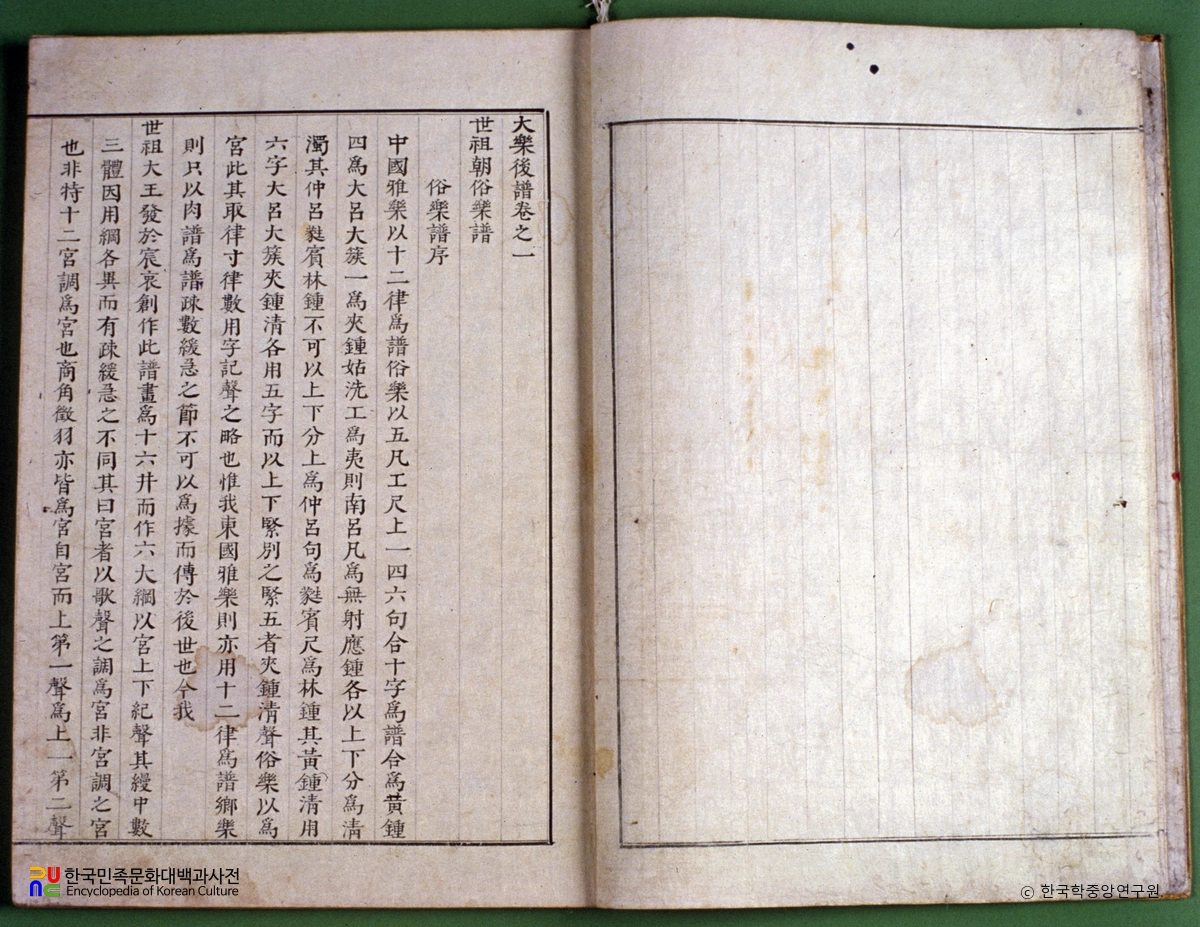 大樂後譜卷之一
世祖朝俗樂譜
俗樂譜序
中國雅樂以十二律爲譜俗樂以五凡工尺上一四六句合十字爲譜合爲黃鍾
四爲大呂大蔟一爲夾鍾姑洗工爲夷則南呂凡爲無射應鍾各以上下分爲清
濁其仲呂蕤賓林鍾不可以上下分上爲仲呂句爲蕤賓尺爲林鍾其黃鍾清用
六字大呂大蔟夾鍾清各用五字而以上下緊別之緊五者夾鍾清聲俗樂以爲
宮此其取律寸律數用字記聲之略也惟我東國雅樂則亦用十二律爲譜鄉樂
則只以肉譜爲譜疎數緩急之節不可以爲據而傳於後世也今我
世祖大王發於宸衷創作此譜畫爲十六井而作六大綱以宮上下紀聲其縵中數
三體因用綱各異而有疎緩急之不同其曰宮者以歌聲之調爲宮非宮調之宮
也非特十二宮調爲宮也商角徵羽亦皆爲宮自宮而上第一聲爲上一第二聲
한국민족문화대백과사전
Encyclopedia of Korean Culture
© 한국학중앙연구원